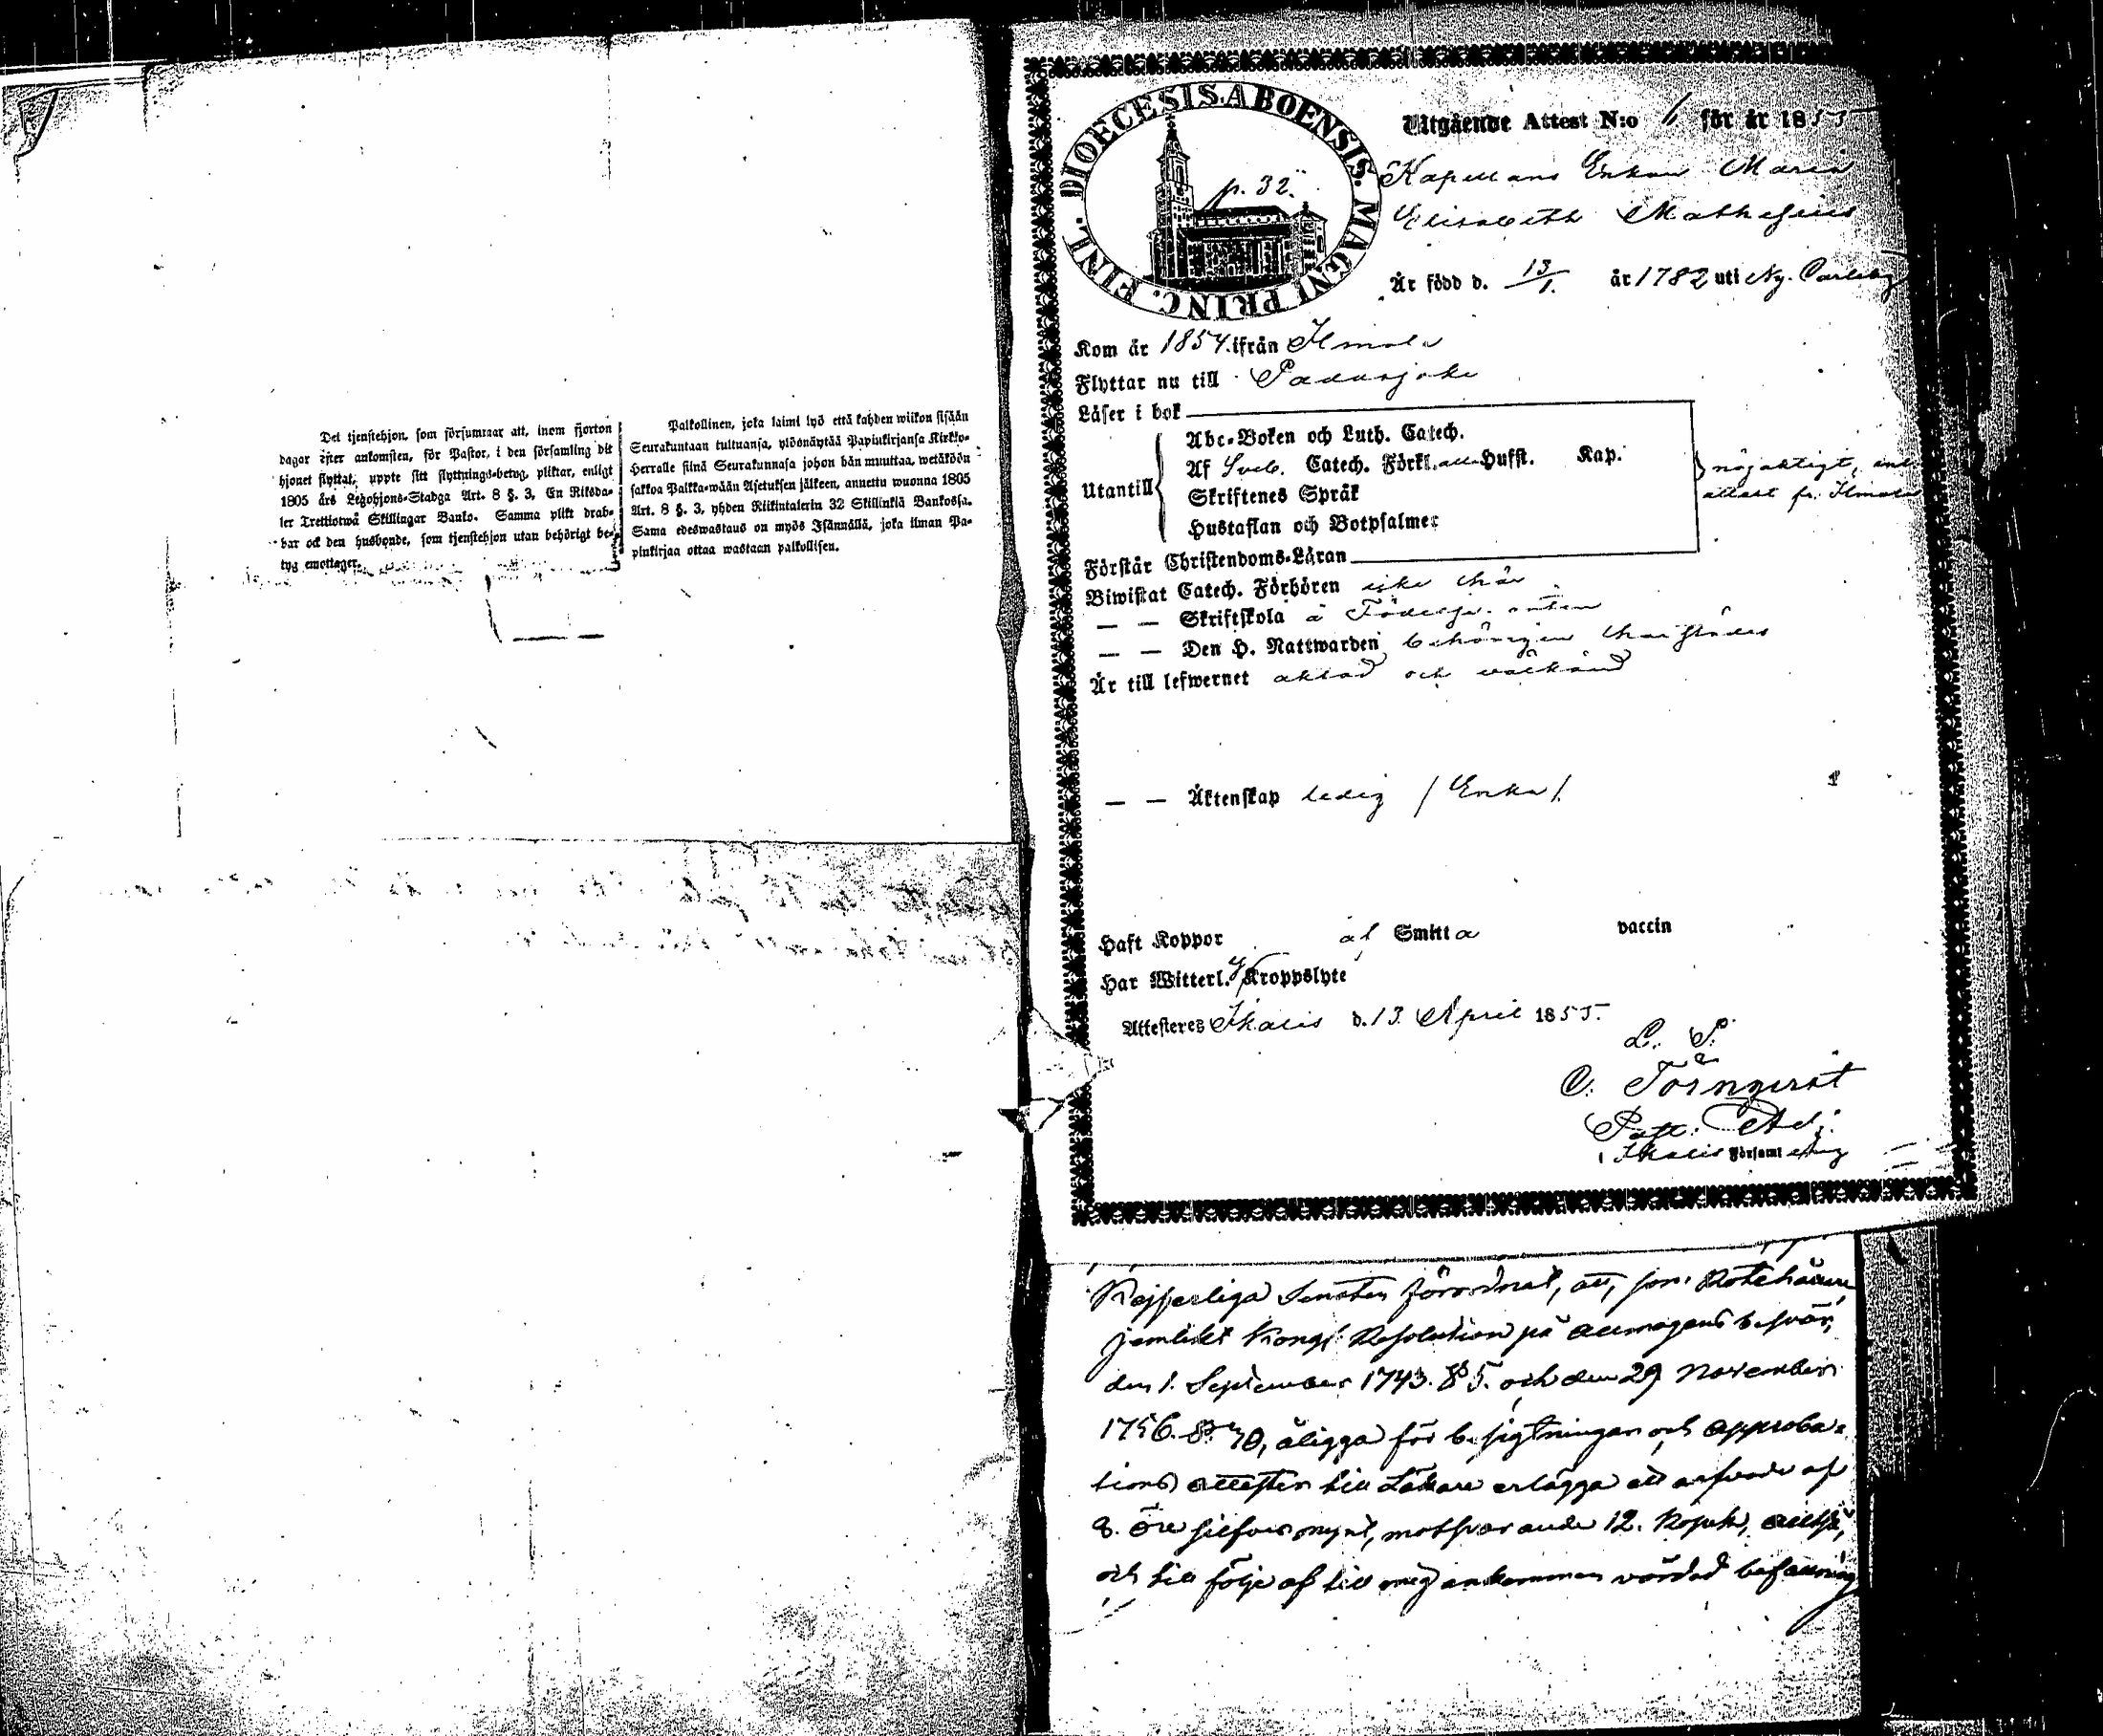 Det tjenstehjon, som försummar att, inom fjorton
dagar efter ankomsten, för Pastor, i den församling dit
hjonet flyttat, uppte sitt flyttnings-betyg, pliktar, enligt
1805 års Legohjons-Stadga Art. 8 §. 3, En Riksda-
ler Trettiotwå Skillingar Banko. Samma plikt drab-
bar ock den husbonde, som tjenstehjon utan behörigt be-
tyg emottager.
Palkollinen, joka laimi lyö että kahden wiikon sisään
Seurakuntaan tultuansa, ylösnäytää Papinkirjansa Kirkko-
Herralle siinä Seurakunnasa johon hän muuttaa, wetäköön
sakkoa Palkka-wään Asetuksen jälkeen, annettu wuonna 1805
Art. 8 §. 3, yhden Riikintalerin 32 Skillinkiä Bankossa.
Sama edeswastaus on myös Isännällä, joka ilman Pa-
pinkirjaa ottaa wastaan palkollisen.
DIOECESIS ABOENSIS. MAGNI PRINC. FINL.
p. 32.
Utgående Attest N:o 6 för år 1855
Kapellans Enkan Maria
Elisabeth Mathesius
Är född d. 13/1. år 1782 uti Ny Carleby
Kom år 1854 ifrån Ilmola
Flyttar nu till Padasjoki
Läser i bok
Utantill
Abc-Boken och Luth. Catech.
Af Sveb. Catech. Förkl. Hufst. Kap.
Skriftenes Språk
Hustaflan och Botpsalmer
nöjaktigt, enl.
attest fr. Ilmola
Förstår Christendoms-Läran
Biwistat Catech. Förhören icke här
— — Skriftskola å Födelse orten
— — Den H. Nattwarden behörigen
Är till lefwernet aktad och välkänd
— — Äktenskap ledig / Enka /.
Haft Koppor af Smitta vaccin
Har Witterl. Kroppslyte
Attesteres Ikalis d. 13 April 1855.
L. S.
C. Törnqvist
Past. Adj.
i Ikalis Församling
Kejserliga Senaten förordnat, att,
jemlikt Kongl. Resolution på allmogens besvär,
den 1. September 1743. § 5. och den 29 November
1756. § 70, åligga för besigtningar och approba-
tions attester till Läkare erlägga ett arfvode af
8. öre silfvermynt, motsvarande 12. Kopek,
och till följe af till mig ankommen vördad befallning